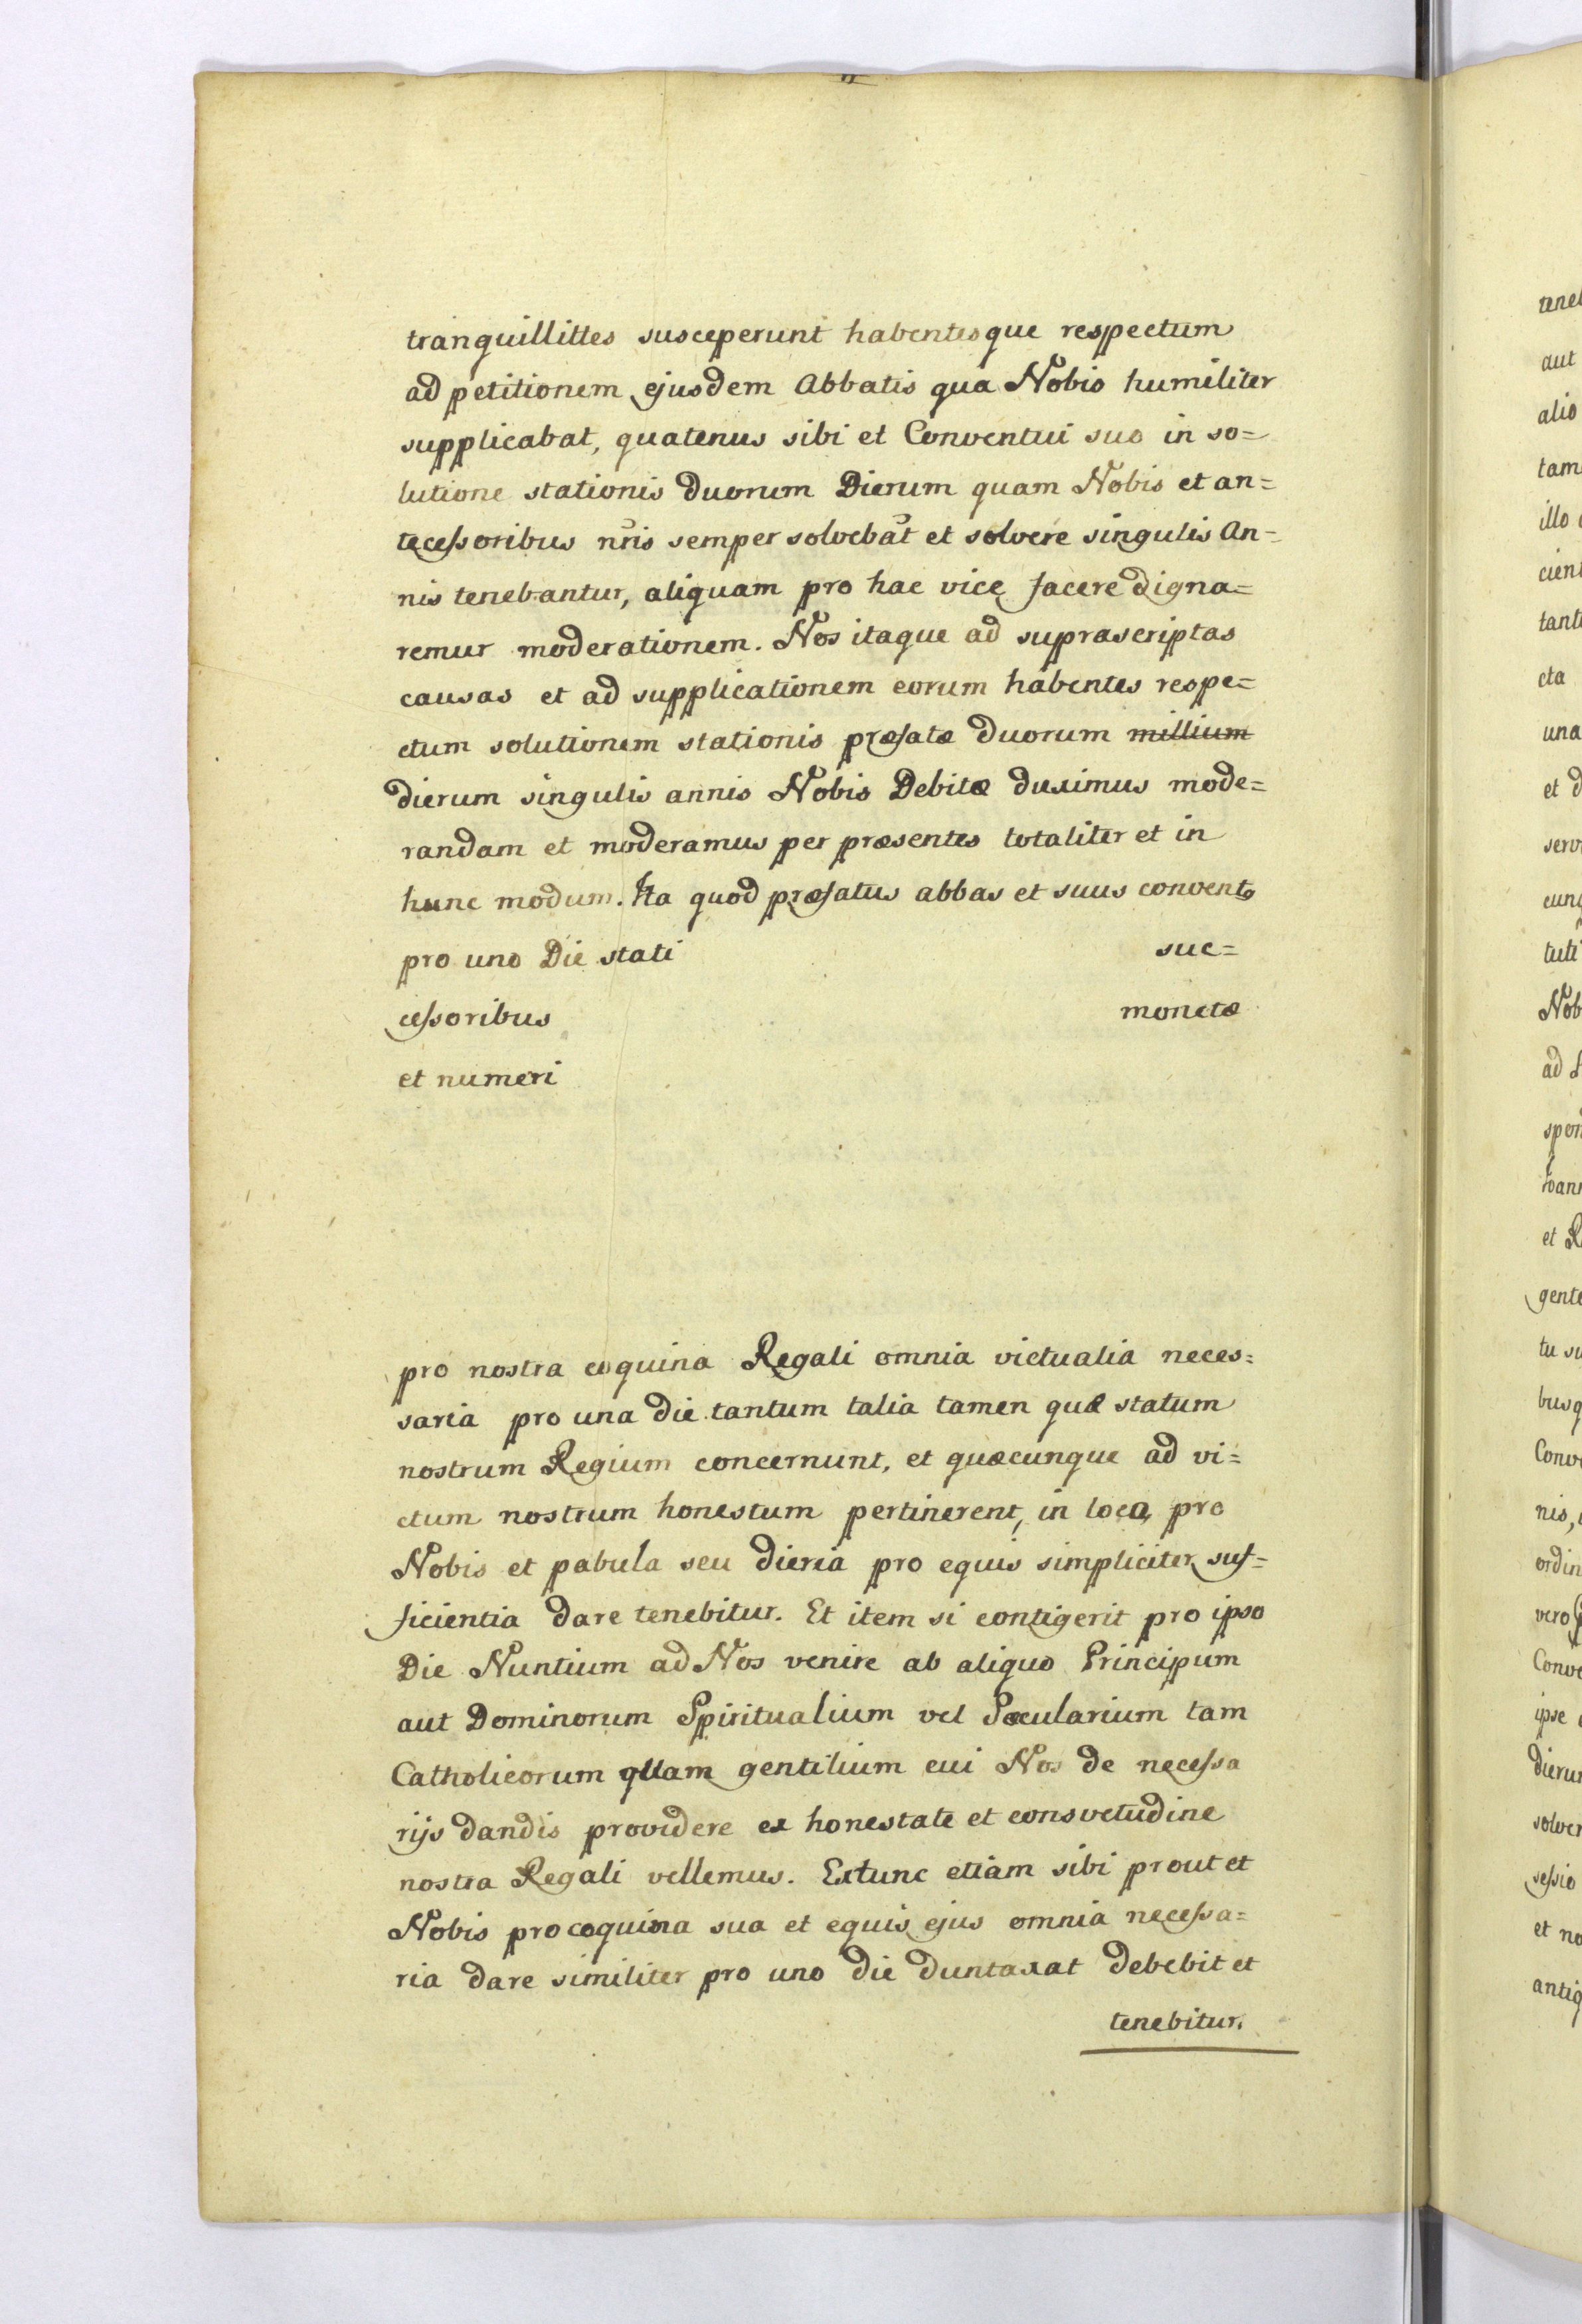 tranquillittes susceperunt habentesque respectum
ad petitionem ejusdem Abbatis qua Nobis humiliter
supplicabat, quatenus sibi et Conventui suo in so=
lutione stationis Duorum Dierum quam Nobis et an=
tecessoribus nr̃is semper solvebat̃ et solvere singulis An=
nis tenebantur, aliquam pro hac vice facere digna=
remur moderationem. Nos itaque ad suprascriptas
causas et ad supplicationem eorum habentes respe=
ctum solutionem stationis præfatæ duorum millium
dierum singulis annis Nobis Debitæ duximus mode=
randam et moderamus per præsentes totaliter et in
hunc modum. Ita quod præfatus abbas et suus convent9
pro uno Die stati suc=
cessoribus monetæ
et numeri
pro nostra coquina Regali omnia victualia neces=
saria pro una die tantum talia tamen quæ statum
nostrum Regium concernunt, et quæcunque ad vi=
ctum nostrum honestum pertinerent, in loca pro
Nobis et pabula seu dieria pro equis simpliciter suf=
ficientia dare tenebitur. Et item si contigerit pro ipso
Die Nuntium ad Nos venire ab aliquo Principum
aut Dominorum Spiritualium vel Sæcularium tam
Catholicorum quam gentilium cui Nos de necessa
rijs dandis providere ex honestate et consvetudine
nostra Regali vellemus. Extunc etiam sibi prout et
Nobis pro coquina sua et equis ejus omnia necessa=
ria dare similiter pro uno die duntaxat debebit et
tenebitur.
tenebi
aut
alio
tam
illo
cient
tant
cta
una
et d
serv
cung
tuti
Nob
ad
spon
et R
gente
tu su
busq
Conve
nis,
ordin
vero
Conve
ipse
dieru
solver
sessio
et no
antiq